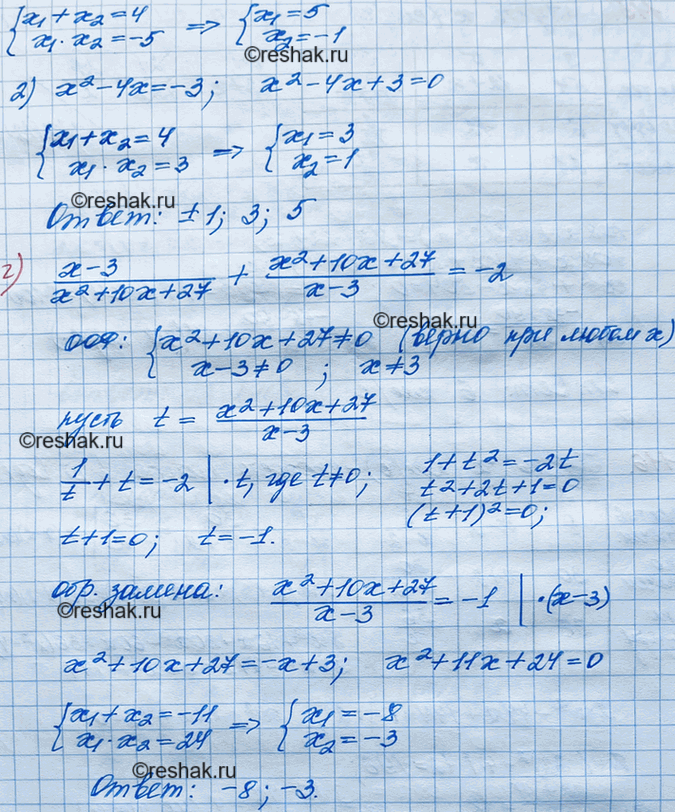 {x₁ + x₂ = 4 => {x₁ = 5
x₁ · x₂ = -5 x₂ = -1
2) x² - 4x = -3; x² - 4x + 3 = 0
{x₁ + x₂ = 4 => {x₁ = 3
x₁ · x₂ = 3 x₂ = 1
©reshak.ru
Ответ: ±1; 3; 5
г) (x-3)/(x²+10x+27) + (x²+10x+27)/(x-3) = -2
©reshak.ru
ООФ: {x²+10x+27≠0 (верно при любом x)
x-3≠0 ; x≠3
пусть t = (x²+10x+27)/(x-3)
©reshak.ru
1/t + t = -2 | · t, где t≠0; 1+t² = -2t
t²+2t+1=0
(t+1)²=0;
t+1=0; t=-1.
обр. замена: (x²+10x+27)/(x-3) = -1 | ·(x-3)
©reshak.ru
x²+10x+27=-x+3; x²+11x+24=0
{x₁+x₂=-11 => {x₁=-8
x₁·x₂=24 x₂=-3
©reshak.ru
Ответ: -8; -3.